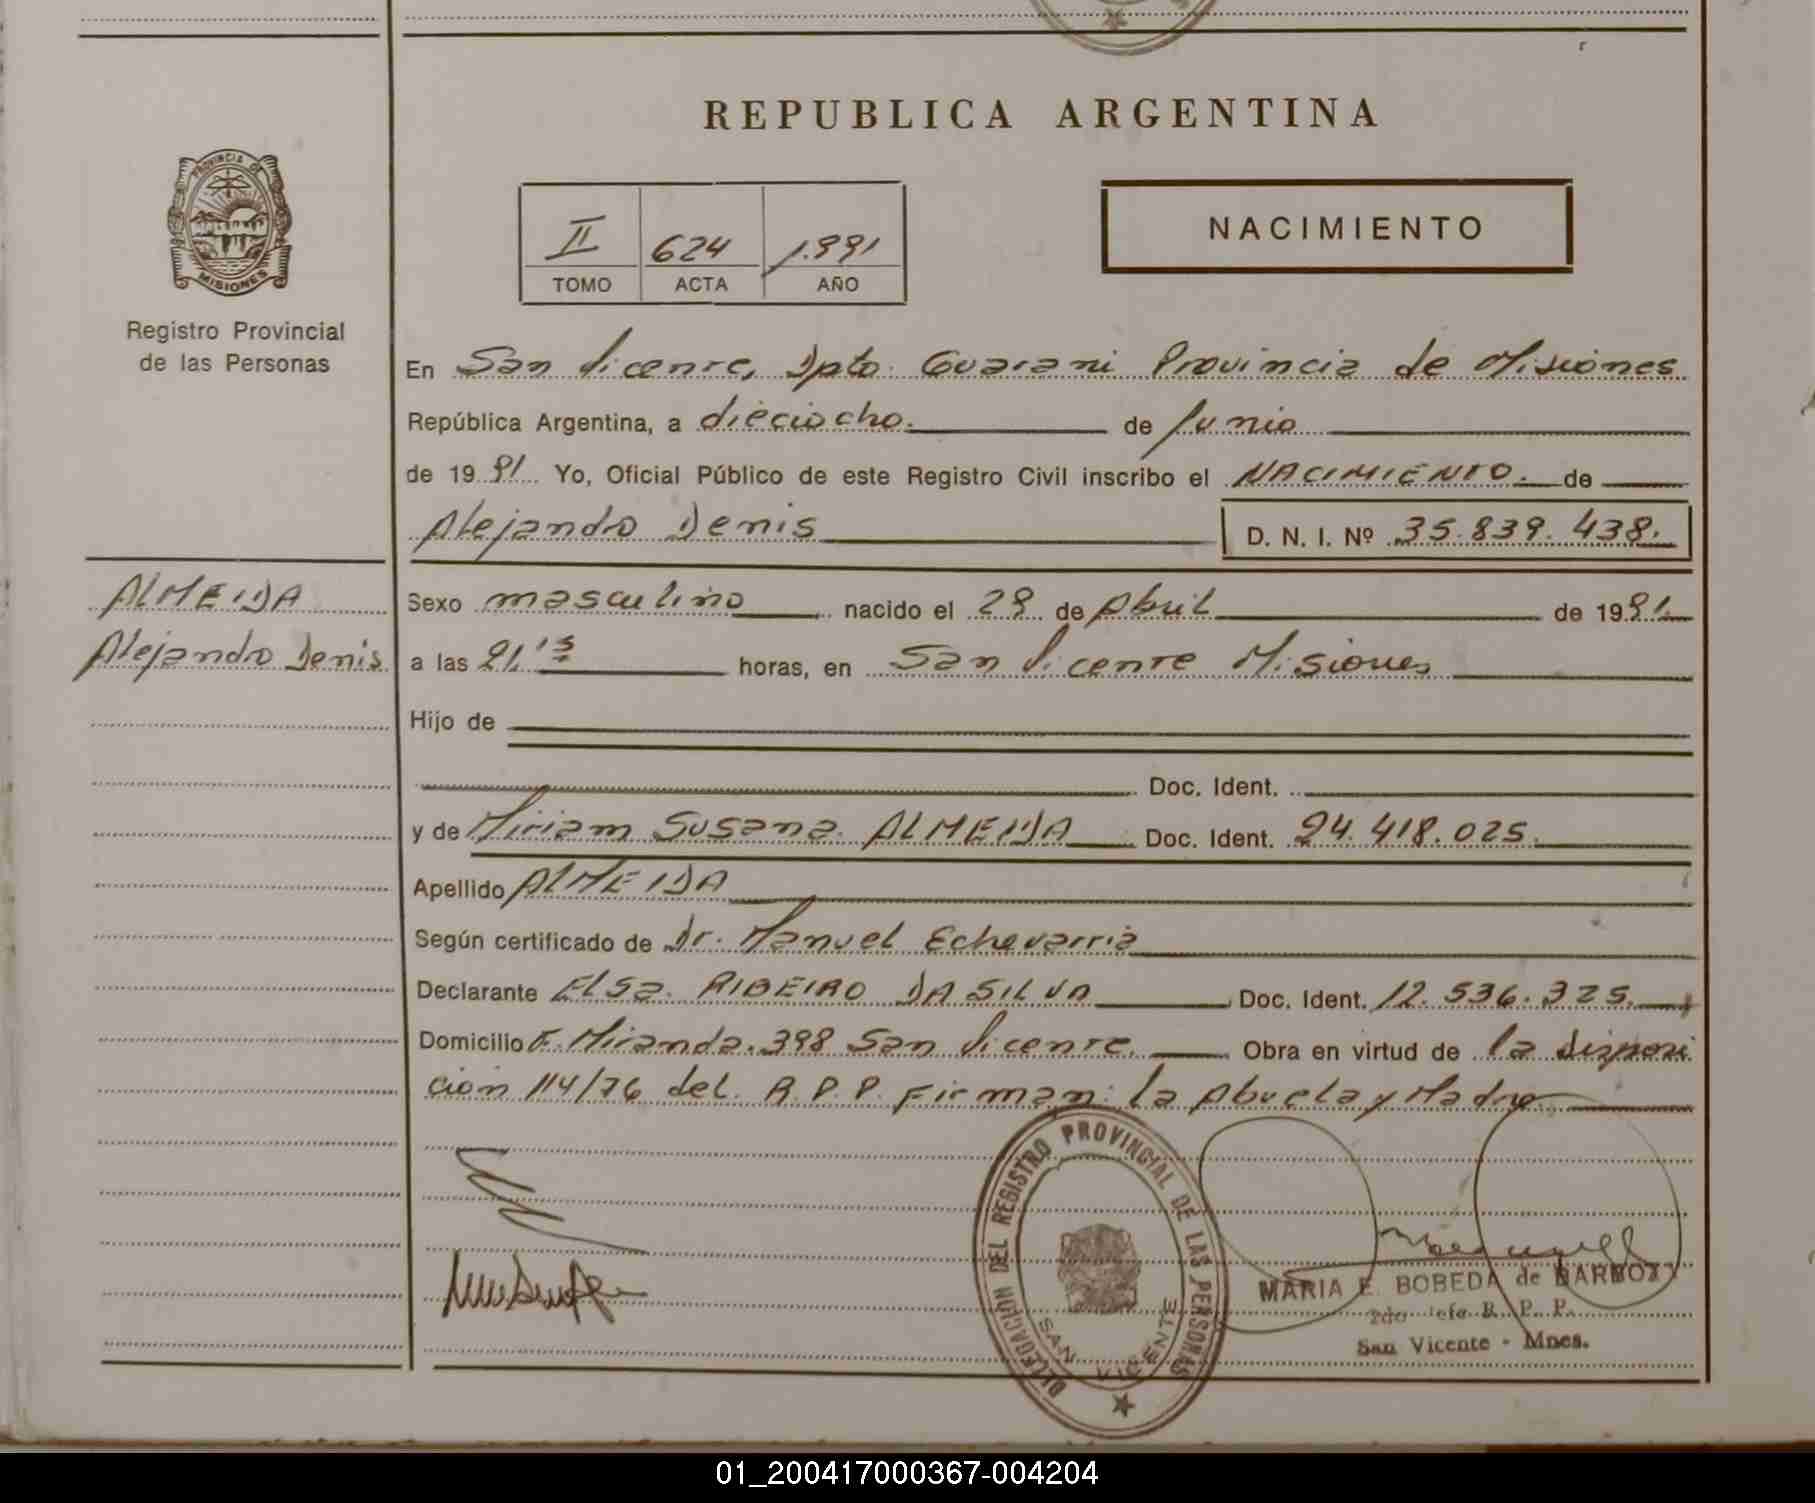 REPUBLICA ARGENTINA
PROVINCIA DE
MISIONES
Registro Provincial
de las Personas
II 624 1.991
TOMO ACTA AÑO
NACIMIENTO
En San Vicente, Dpto. Guarani Provincia de Misiones
República Argentina, a dieciocho. de Junio
de 1991 Yo, Oficial Público de este Registro Civil inscribo el NACIMIENTO. de
Alejandro Denis D. N. I. Nº 35.839.438.
ALMEIDA
Alejandro Denis
Sexo masculino nacido el 29 de Abril de 1991.
a las 21,15 horas, en San Vicente Misiones
Hijo de
Doc. Ident.
y de Miriam Susana ALMEIDA Doc. Ident. 24.418.025.
Apellido ALMEIDA
Según certificado de Dr. Manuel Echevarria
Declarante Elsa. RIBEIRO DA SILVA Doc. Ident. 12.536.325.
Domicilio F. Miranda. 398 San Vicente. Obra en virtud de la disposi
cion 114/76 del R.P.P. Firman: la Abuela y Madre
DELEGACION DEL REGISTRO PROVINCIAL DE LAS PERSONAS
SAN VICENTE
MARIA E. BOBEDA de BARBOZA
2do Jefe R. P. P.
San Vicente - Mnes.
01_200417000367-004204